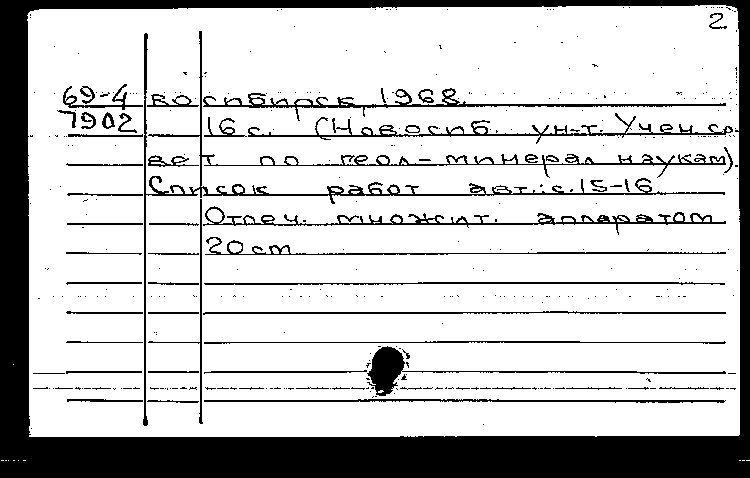 2
69-4 восибирск, 1968.
7902 16 с. (Новосиб. ун-т. Учен. со-
вет по геол-минерал наукам).
Список работ авт.: с. 15-16
Отпеч. множит. аппаратом
20 cm